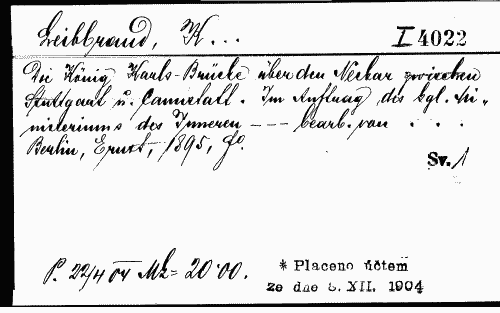 Leibbrand, K... I 4022
Die König Karls-Brücke über den Neckar zwischen
Stuttgart u. Cannstatt. Im Auftrag des kgl. Mi-
nisteriums des Inneren --- bearb. von . . .
Berlin, Ernst, 1895, Fo.
Sv. 1
P. 22/4 04 Mk = 20·00.
* Placeno účtem
ze dne 8. XII. 1904